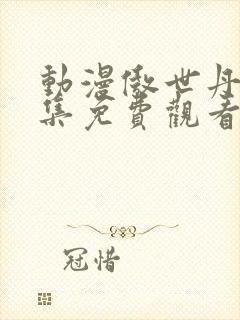 動漫傲世丹
集免費觀看
冠惜